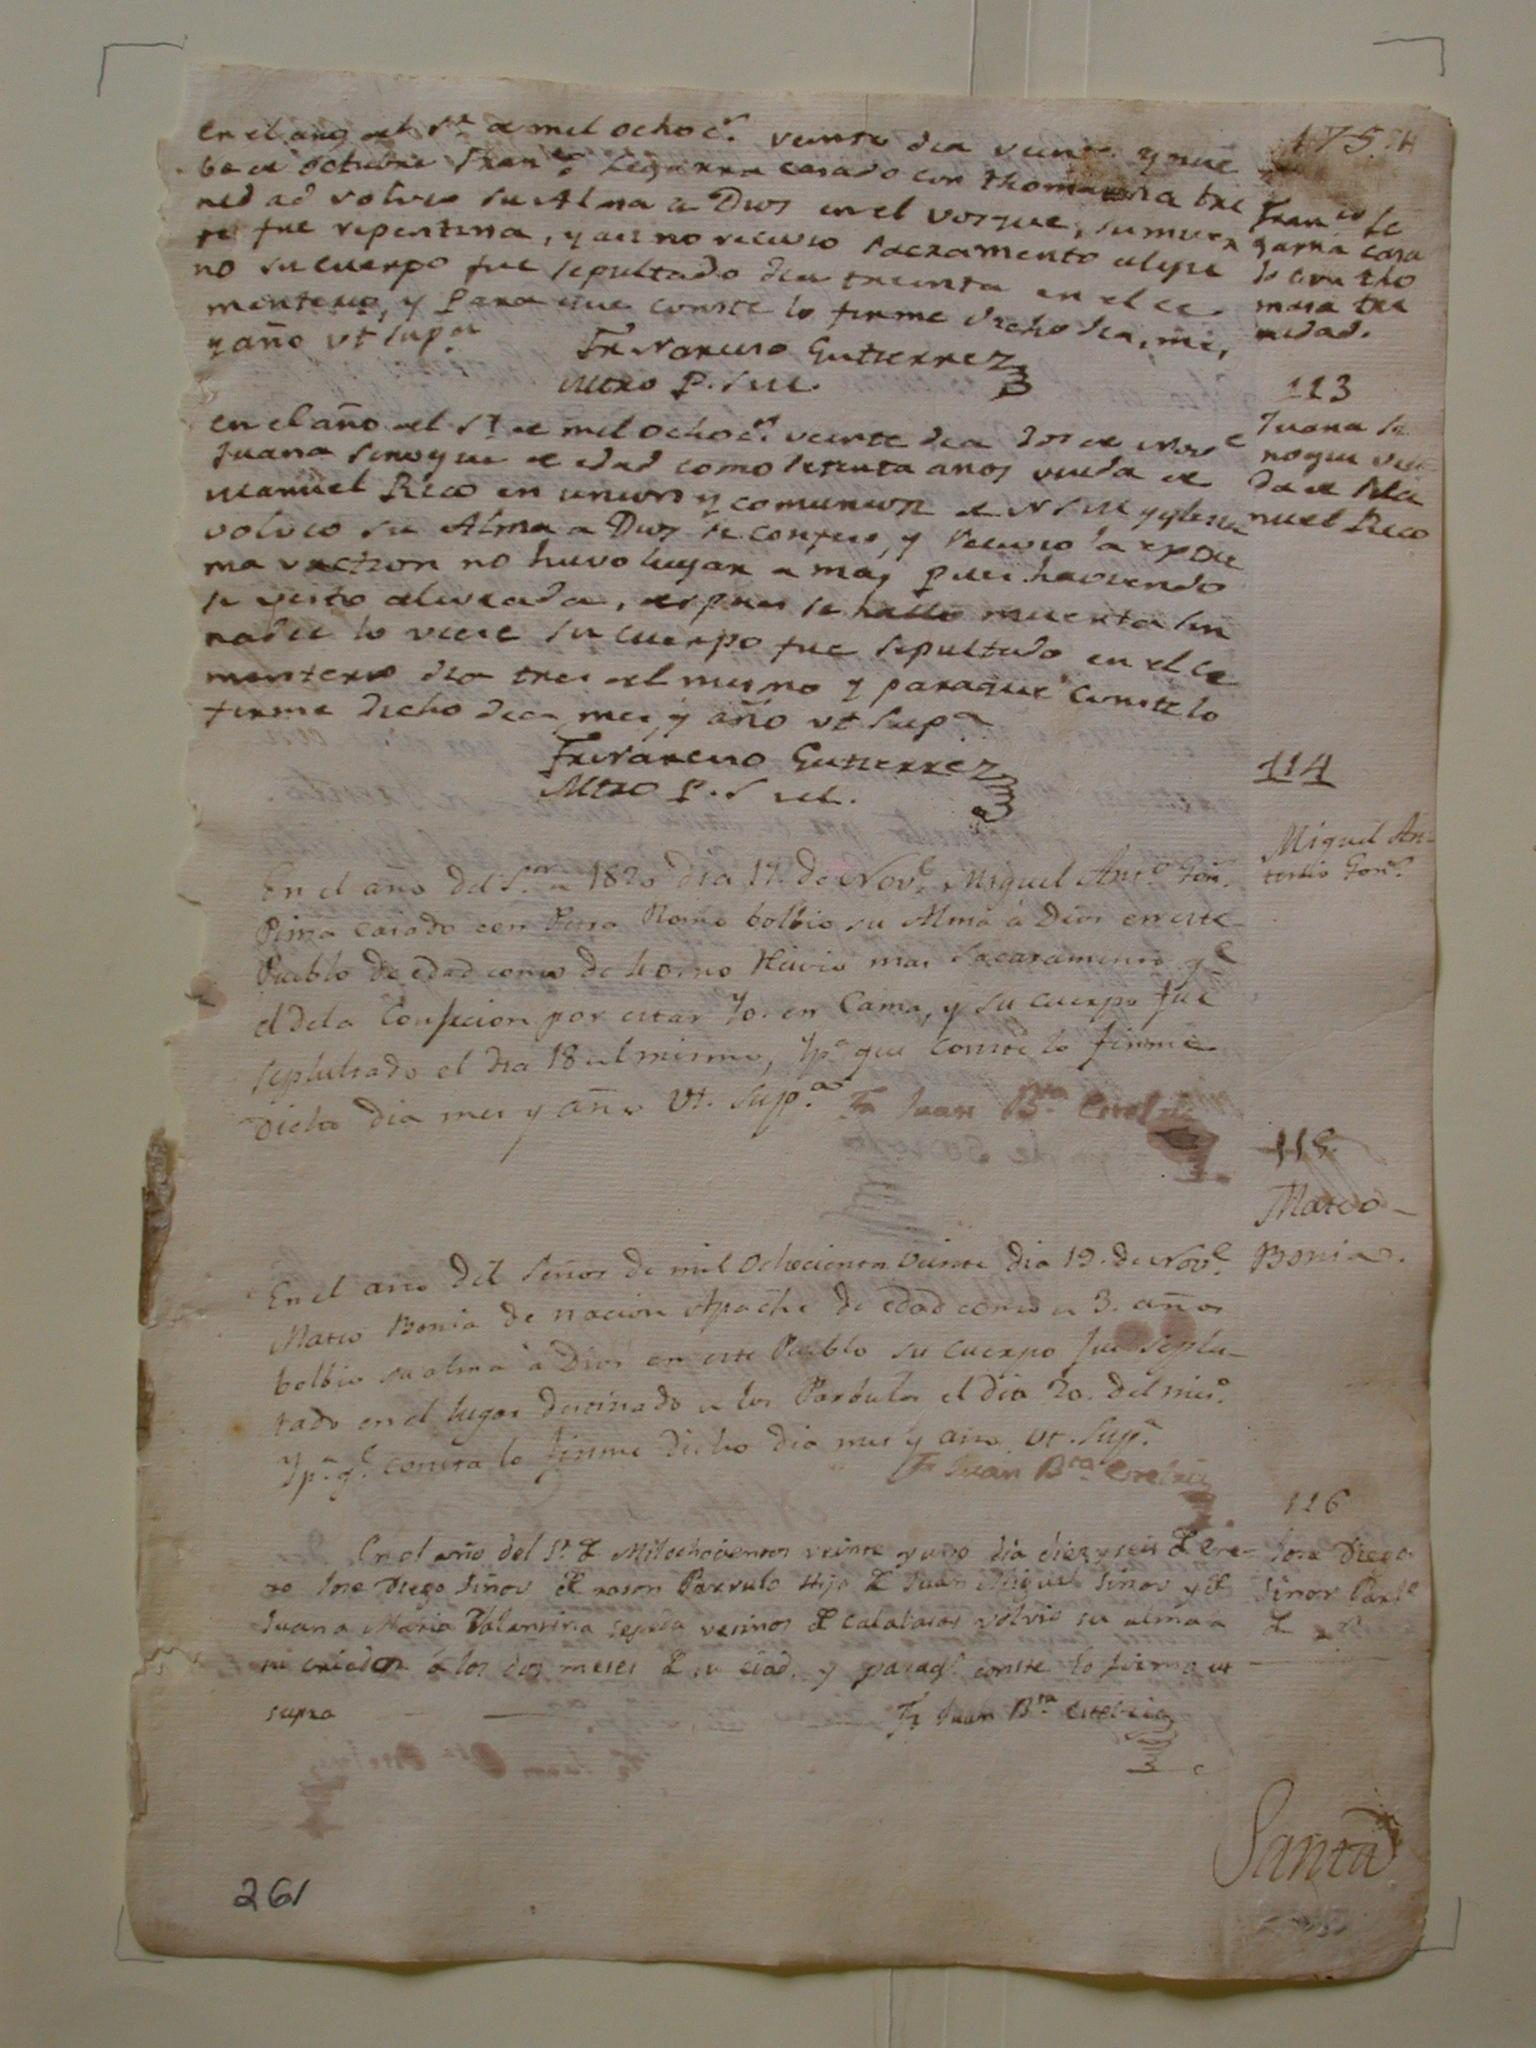 175.
En el año del Sr. de mil ochocs. veinte dia veinte y nue
be de Octubre Franco. Legarra casado con Thomasa tri
nedad volvio su Alma a Dios en el vosque, su muer
te fue repentina, y asi no recivio Sacramento algu
no su cuerpo fue sepultado dia treinta en el ce
menterio, y para que conste lo firme dicho dia, mes,
y año vt supa
Fr Narciso Gutierrez
Mtro P. Sul.
Franco Le
garra casa
do con tho
masa tri
nidad.
113
En el año del Sr. de mil Ochocs. veinte dia dos de Nove
Juana Sinogui de edad como setenta anos viuda de
Manuel Rico en union y comunion de N S M y yglesia
volvio su Alma a Dios se confeso, y recivio la extre
ma vnction no huvo lugar a mas pues haviendo
se visto aliviada, despues se hallo muerta sin
nadie lo viese su cuerpo fue sepultado en el ce
menterio dia tres del mismo y paraque conste lo
firme dicho dia mes, y año vt supa
Fr Narciso Gutierrez
Mtro P. Sul.
Juana Si
nogui viu
da de Ma
nuel Rico
114
En el año del Sr. de 1820 dia 17. de Nove. Miguel Anto. Gon.
Pima casado con Rosa Romo bolbio su Alma á Dios en este
Pueblo de edad como de 40. no Recivio mas Sacaramento qe
el dela Confecion por estar Yo. en Cama, y su cuerpo fue
seplutado el dia 18 del mismo, Ypa. que conste lo firme
Dicho dia mes y año Vt. Supra.
Fr Juan Bta. Estelric
Miguel An-
tonio Gon.
115.
Mateo
Bonia.
En el ano del Señor de mil Ochocientos veinte dia 19. de Nove.
Mateo Bonia de nacion Apache de edad como de 3. años
bolbio su alma á Dios en este Pueblo su cuerpo fue seplu-
tado en el lugar destinado a los Parbulos el dia 20. del miso.
Ypa. qe. consta lo firme Dicho dia mes y año vt. Supa.
Fr Juan Bta Estelric
116
En el año del Sr. de Milochocientos veinte y uno dia diez y seis de Ene-
ro Jose Diego Siñor de rason Parvulo Hijo de Juan Miguel Siñor y de
Juana Maria Valensina Sepeda vesinos de Calabasas volvio su alma a
su criador á los dos meses de su edad, y paraqe. conste lo firmo ut
supra
Fr Juan Bta. Estelric
Jose Diego
Siñor Parvo
de rn
Santa
261